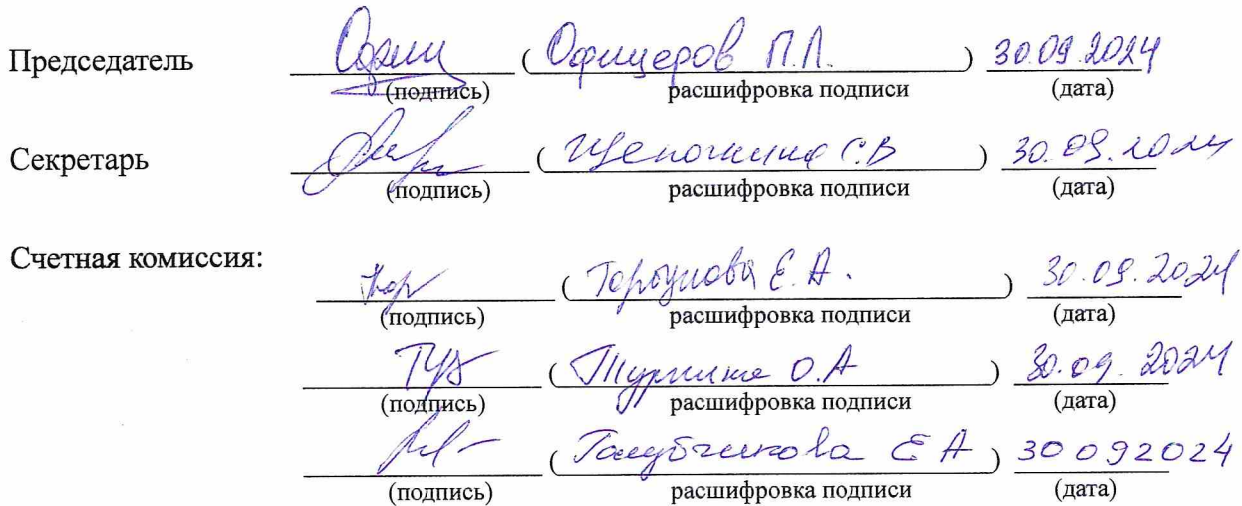 Председатель ( Офицеров П.П. ) 30.09.2024
(подпись) расшифровка подписи (дата)
Секретарь ( Щепочкина С.В ) 30.09.2024
(подпись) расшифровка подписи (дата)
Счетная комиссия:
( Горбунова Е.А. ) 30.09.2024
(подпись) расшифровка подписи (дата)
( О.А ) 30.09.2024
(подпись) расшифровка подписи (дата)
( Голубчикова Е А ) 30 09 2024
(подпись) расшифровка подписи (дата)